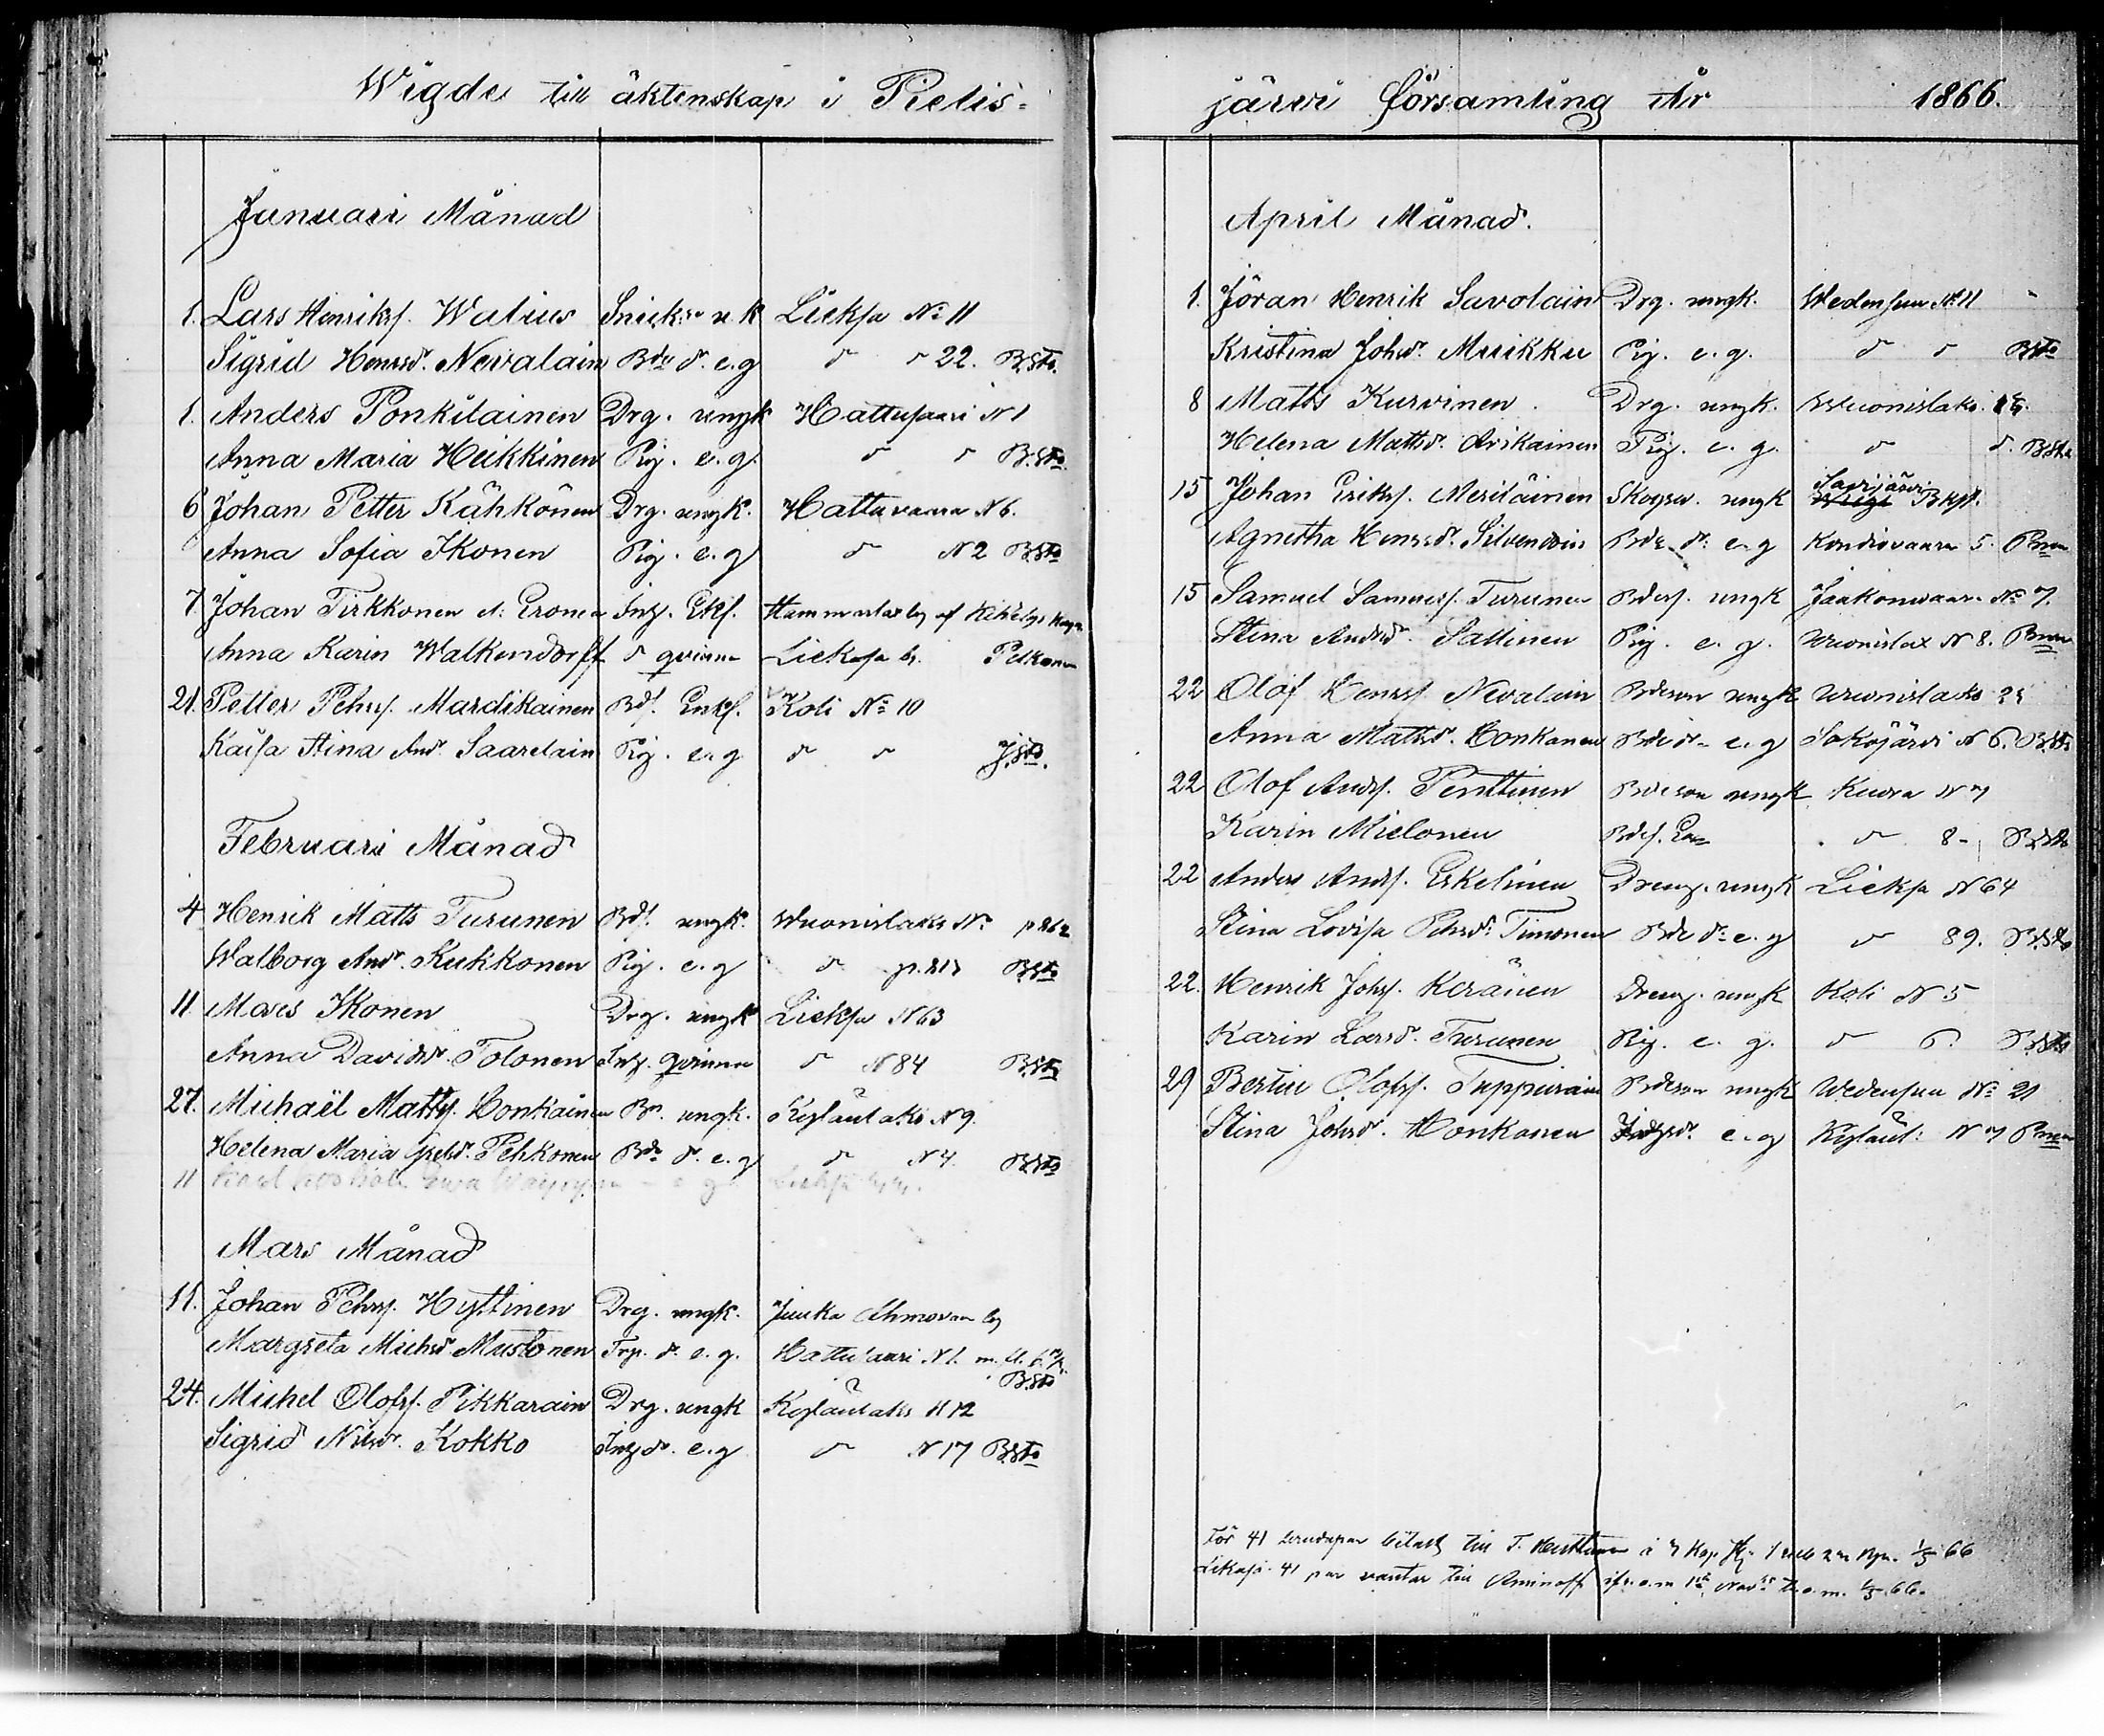 Wigde till äktenskap i Pielis-
Januari Månad
1. Lars Henriksf. Walius Snick. u.k Lieksa No 11
Sigrid Henrsdr. Nevalain Bde dr. e.g d d 22. B.sto.
1. Anders Ponkilainen Drg. ungk Hattusaari N 1
Anna Maria Heikkinen Pig. e.g. d d B.sto.
6 Johan Petter Kähkönen Drg. ungk. Hattuvaara N 6.
Anna Sofia Ikonen Pig. e.g d N 2 B.sto
7 Johan Tirkkonen Inh. Ekf. Hammaslax by af
Anna Karin Walkendorff d qvinna Lieksa by. Pelkonen
21. Petter Pehrsf. Mardikainen Bdf. Enkf. Koli No 10
Kaisa Stina Andr. Saarelain Pig. e.g d d J.sto.
Februari Månad
4 Henrik Matts Turunen Bdf. ungk. Wuonislaks No p 262
Walborg Andr. Kukkonen Pig. e.g d p. 213 B.sto
11. Moses Ikonen Drg. ungk Lieksa N 63
Anna Davidsdr. Tolonen Inh. qvinna d N 84 B.sto
27. Michaël Mattsf. Honkainen Bn. ungk. Kylänlaks N 9.
Helena Maria Grelsdr. Pehkonen Bde dr. e.g d N 4. B.sto
11
Mars Månad
11. Johan Pehrsf. Hyttinen Drg. ungk. Juuka Ahmovaara by
Margreta Michsdr Mustonen Trp. dr. e.g. Hattusaari N 1.
B.sto
24. Michel Olofsf. Pikkarain Drg. ungk Kylänlaks N 12
Sigrid Nilsdr. Kokko Inh dr. e.g d N 17 B.sto
järvi församling År 1866.
April Månad.
1. Jöran Henrik Savolain Drg. ungk. Wedensuu No 11
Kristina Johsdr. Muikku Pig. e.g. d d B.sto
8 Matts Kurvinen. Drg. ungk. Wuonislaks. 16.
Helena Mattsdr. Arikainen Pig. e.g. d d. B.sto
15 Johan Eriksf. Meriläinen Skogsv. ungk Savijärvi Bkst.
Agnetha Henrsdr. Silvennoin Bde dr: e.g Kondiovaara 5. Pnen
15 Samuel Samuelsf. Turunen Bdesf. ungk Jaakonvaara No 7.
Stina Andrsdr. Sallinen Pig. e.g. Wuonislax N 8. Pnen
22 Olof Henrsf. Nevalain Bdeson ungk Wuonislaks 25
Anna Mattsdr. Honkanen Bde dr e.g Sokojärvi N 6. B.sto
22 Olof Andrsf. Penttinen Bdeson ungk Kuora N 7
Karin Mielonen Bdef. Enk d 8. B.sto
22 Anders Andrsf. Eskelinen Dreng. ungk Lieksa N 64
Stina Lovisa Pehrsdr. Timonen Bde dr e.g d 89. B.sto
22. Henrik Johsf. Keränen Dreng. ungk Koli N 5
Karin Larsdr. Turunen Pig. e.g. d 6. B.sto
29 Bertin Olofsf. Tuppurain Bdeson ungk Wedensuu No 21
Stina Johsdr. Honkanen Inhdr. e.g Kylänl: N 7 Pnen
För 41 brudepar betalt till T. Kerttunen 1/5 66
Lieksa. 41 par vantar till Aminoff fr.o.m 1sta t.o.m. 1/5 66.